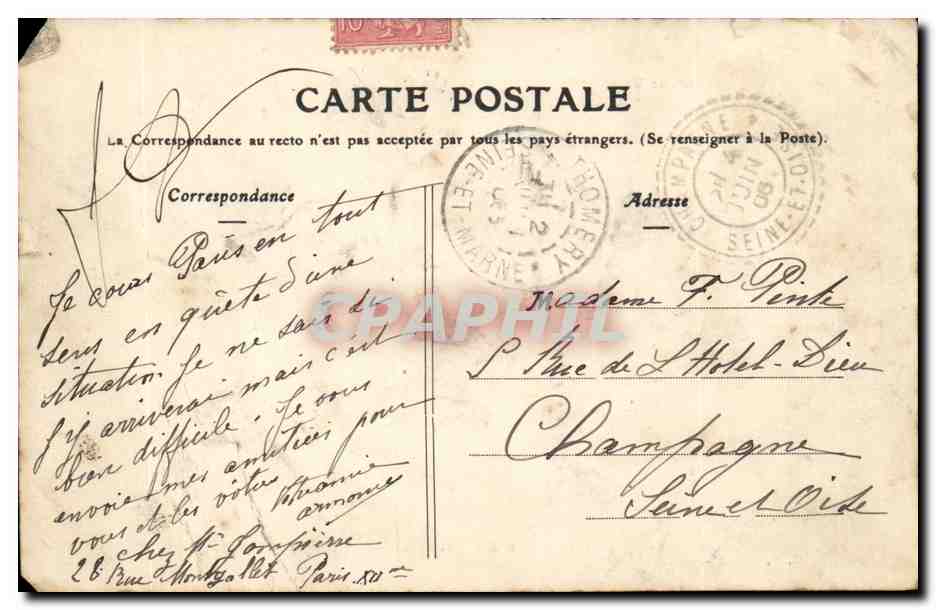 10
CARTE POSTALE
La Correspondance au recto n'est pas acceptée par tous les pays étrangers. (Se renseigner à la Poste).
Correspondance
Je cours Paris en tout
sens en quête d'une
situation. Je ne sais si
j'y arriverai mais c'est
bien difficile. Je vous
envoie mes amitiés pour
vous et les vôtres
chez Mr
28 Rue Montgallet Paris XIIme
THOMERY
SEINE-ET-MARNE
CHAMPAGNE
4
JUIN
06
SEINE-ET-OISE
Adresse
Madame F. Pinte
5 Rue de L'Hotel-Dieu
Champagne
Seine et Oise
CPAPHIL